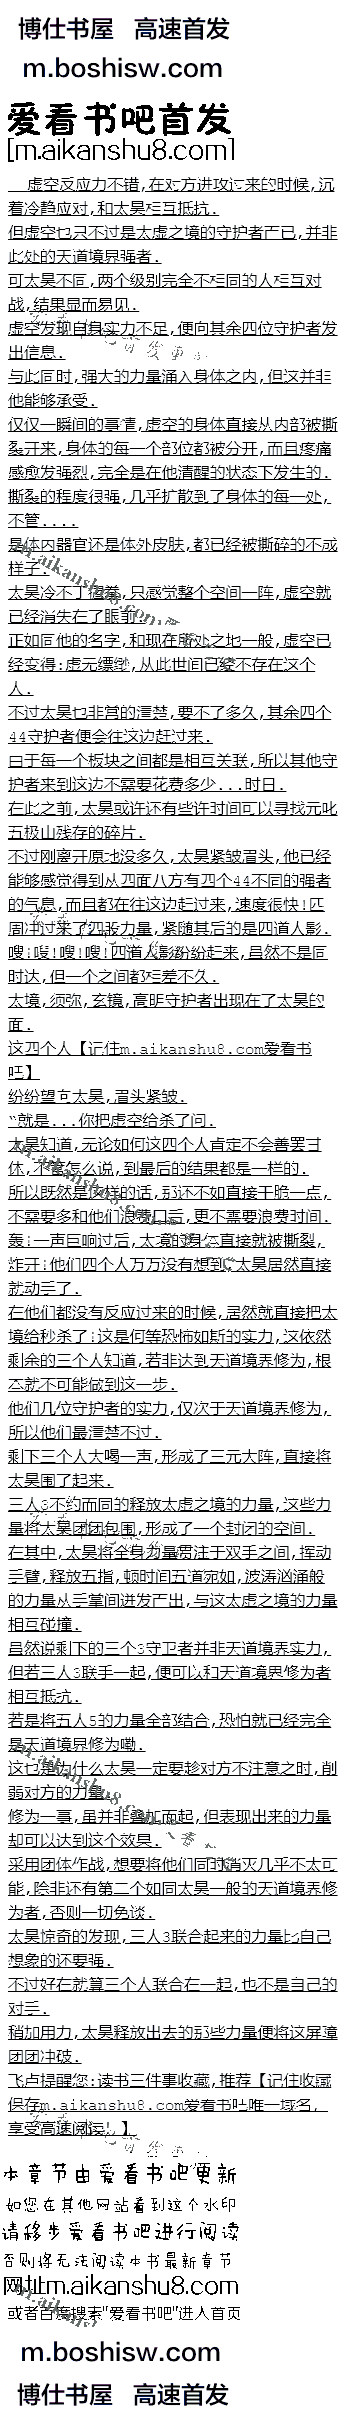 博仕书屋 高速首发
m.boshisw.com
爱看书吧首发
[m.aikanshu8.com]
虚空反应力不错,在对方进攻过来的时候,沉
着冷静应对,和太昊相互抵抗.
但虚空也只不过是太虚之境的守护者而已,并非
此处的天道境界强者.
可太昊不同,两个级别完全不相同的人相互对
战,结果显而易见.
虚空发现自身实力不足,便向其余四位守护者发
出信息.
与此同时,强大的力量涌入身体之内,但这并非
他能够承受.
仅仅一瞬间的事情,虚空的身体直接从内部被撕
裂开来,身体的每一个部位都被分开,而且疼痛
感愈发强烈,完全是在他清醒的状态下发生的.
撕裂的程度很强,几乎扩散到了身体的每一处,
不管....
是体内器官还是体外皮肤,都已经被撕碎的不成
样子.
太昊冷不丁信誉,只感觉整个空间一阵,虚空就
已经消失在了眼前.
正如同他的名字,和现在所处之地一般,虚空已
经变得:虚无缥缈,从此世间已经不存在这个
人.
不过太昊也非常的清楚,要不了多久,其余四个
44守护者便会往这边赶过来.
由于每一个板块之间都是相互关联,所以其他守
护者来到这边不需要花费多少...时日.
在此之前,太昊或许还有些许时间可以寻找元叱
五极山残存的碎片.
不过刚离开原地没多久,太昊紧皱眉头,他已经
能够感觉得到从四面八方有四个44不同的强者
的气息,而且都在往这边赶过来,速度很快!四
周冲过来了四股力量,紧随其后的是四道人影.
嗖!嗖!嗖!嗖!四道人影纷纷赶来,虽然不是同
时达,但一个之间都相差不久.
太境,须弥,玄镜,高明守护者出现在了太昊的
面.
这四个人【记住m.aikanshu8.com爱看书
吧】
纷纷望向太昊,眉头紧皱.
“就是...你把虚空给杀了问.
太昊知道,无论如何这四个人肯定不会善罢甘
休,不管怎么说,到最后的结果都是一样的.
所以既然是这样的话,那还不如直接干脆一点,
不需要多和他们浪费口舌,更不需要浪费时间.
轰:一声巨响过后,太境的身体直接就被撕裂,
炸开!他们四个人万万没有想到,太昊居然直接
就动手了.
在他们都没有反应过来的时候,居然就直接把太
境给秒杀了!这是何等恐怖如斯的实力,这依然
剩余的三个人知道,若非达到天道境界修为,根
本就不可能做到这一步.
他们几位守护者的实力,仅次于天道境界修为,
所以他们最清楚不过.
剩下三个人大喝一声,形成了三元大阵,直接将
太昊围了起来.
三人3不约而同的释放太虚之境的力量,这些力
量将太昊团团包围,形成了一个封闭的空间.
在其中,太昊将全身力量贯注于双手之间,挥动
手臂,释放五指,顿时间五道宛如,波涛汹涌般
的力量从手掌间迸发而出,与这太虚之境的力量
相互碰撞.
虽然说剩下的三个3守卫者并非天道境界实力,
但若三人3联手一起,便可以和天道境界修为者
相互抵抗.
若是将五人5的力量全部结合,恐怕就已经完全
是天道境界修为嘞.
这也是为什么太昊一定要趁对方不注意之时,削
弱对方的力量.
修为一事,虽并非叠加而起,但表现出来的力量
却可以达到这个效果.
采用团体作战,想要将他们同时消灭几乎不太可
能,除非还有第二个如同太昊一般的天道境界修
为者,否则一切免谈.
太昊惊奇的发现,三人3联合起来的力量比自己
想象的还要强.
不过好在就算三个人联合在一起,也不是自己的
对手.
稍加用力,太昊释放出去的那些力量便将这屏障
团团冲破.
飞点提醒您:读书三件事收藏,推荐【记住收藏
保存m.aikanshu8.com爱看书吧唯一域名,
享受高速阅读!】
本章节由爱看书吧更新
如您在其他网站看到这个水印
请移步爱看书吧进行阅读
否则将无法阅读本书最新章节
网址m.aikanshu8.com
或者百度搜索"爱看书吧"进入首页
m.boshisw.com
博仕书屋 高速首发